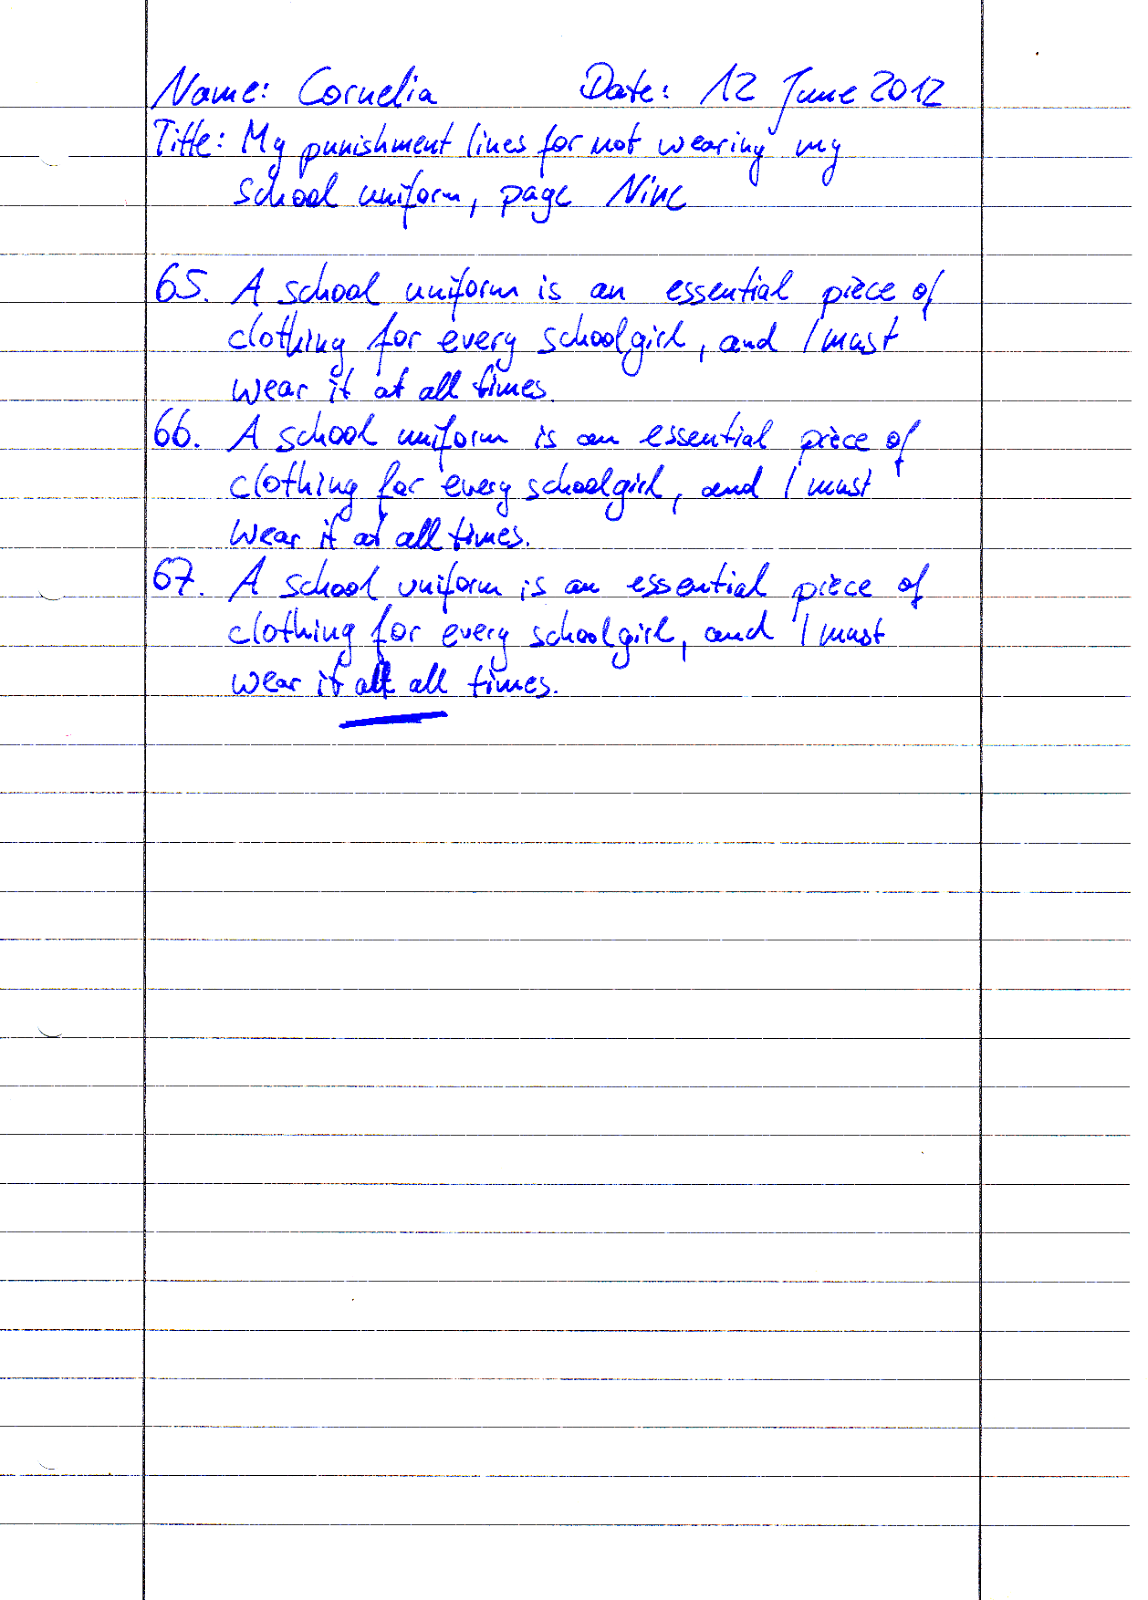 Name: Cornelia Date: 12 June 2012
Title: My punishment lines for not wearing my
school uniform, page Nine
65. A school uniform is an essential piece of
clothing for every schoolgirl, and I must
wear it at all times.
66. A school uniform is an essential piece of
clothing for every schoolgirl, and I must
wear it at all times.
67. A school uniform is an essential piece of
clothing for every schoolgirl, and I must
wear it at all times.